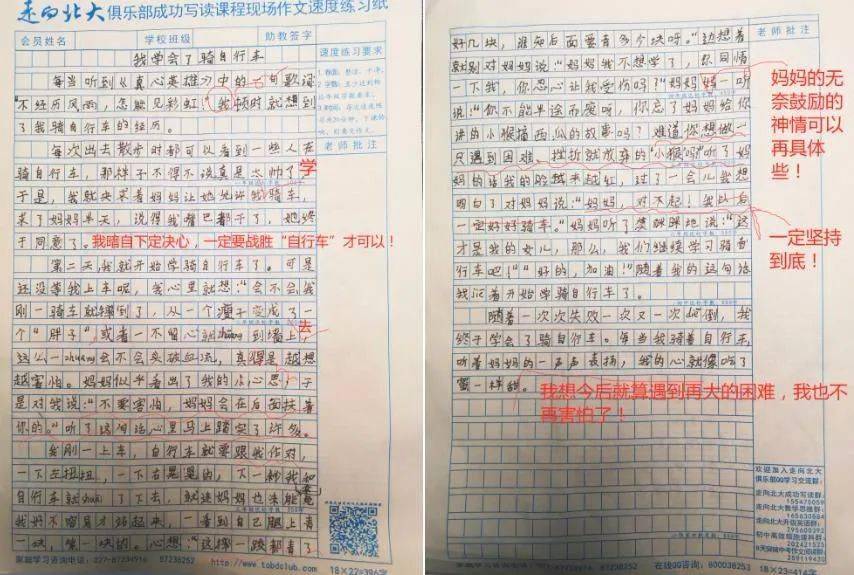 走向北大俱乐部成功写读课程现场作文速度练习纸
会员姓名 学校班级 助教签字
速度练习要求
我学会了骑自行车
每当听到《真心英雄》中的一句歌词
"不经历风雨,怎能见彩虹。"我顿时就想到
了我骑自行车的经历。
老师批注
每次出去散步时都可以看到一些人在
骑自行车,那样子不得不说真是太帅了,
学
于是,我就央求着妈妈让她允许我骑车,
求了妈妈半天,说得我嘴巴都干了,她终
于同意了。我暗自下定决心,一定要战胜“自行车”才可以!
第二天我就开始学骑自行车了。可是
还没等我上车呢,我心里就想:"会不会我
刚一骑车就摔倒了,从一个瘦子变成了一
个"胖子",或者一不留心就chuàng到墙上,
去
这么一zhuang会不会头破血流,真得是越想
越害怕。妈妈似乎看出了我的小心思,于
是对我说:"不要害怕,妈妈会在后面扶着
你的。"听了这句话心里马上踏实了许多。
我刚一上车,自行车就要跟我作对,
一下左扭扭,一下右晃晃的,下一秒我和
自行车就shuāi了下去,就连妈妈也未能
我好不容易才站起来,一看到自己腿上青
一块,紫一块的。心想:"这摔一跤都青了
家庭学习咨询电话:027-87234916 87238252 http://www.tobdclub.com 18×22=396字
老师批注
好几块,谁知后面要青多个块呀。"边想着
就别对妈妈说:"妈妈我不想学了,你同情
一下我,你忍心让我受伤吗?"妈妈一听
说:"你不能半途而废呀,你忘了妈妈给你
讲的小猴摘西瓜的故事吗?难道你想做一
只遇到困难、挫折就放弃的"小猴吗"听了妈
妈的话我的脸越来越红,过了一会儿我想
明白了对妈妈说:"妈妈,对不起!我以后
一定好好骑车。"妈妈听了笑眯眯地说:"这
才是我的女儿,那么,我们继续学习骑自
行车吧!""好的,加油!"随着我的这句话
我jiē着开始学骑自行车了。
妈妈的无
奈鼓励的
神情可以
再具体
些!
一定坚持
到底!
随着一次次失败一次又一次dié倒,我
终于学会了骑自行车。每当我骑着自行车,
听着妈妈的一声声表扬,我的心就像吃了
蜜一样甜。
我想今后就算遇到再大的困难,我也不
再害怕了!
欢迎加入走向北大
俱乐部QQ学习交流群:
走向北大成功写读群:
走向北大数学思维群:
走向北大升级英语群:
家庭学习咨询电话:027-87234916 87238252 在线QQ咨询:800038253 18×23=414字